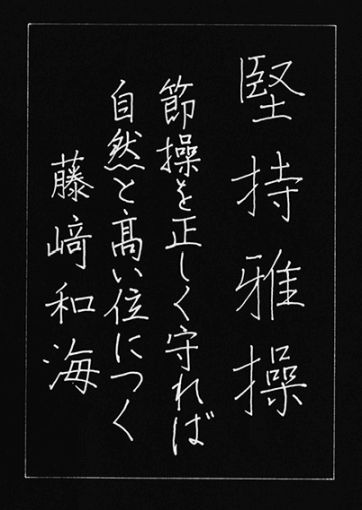 堅持雅操
節操を正しく守れば
自然と髙い位につく
藤﨑和海